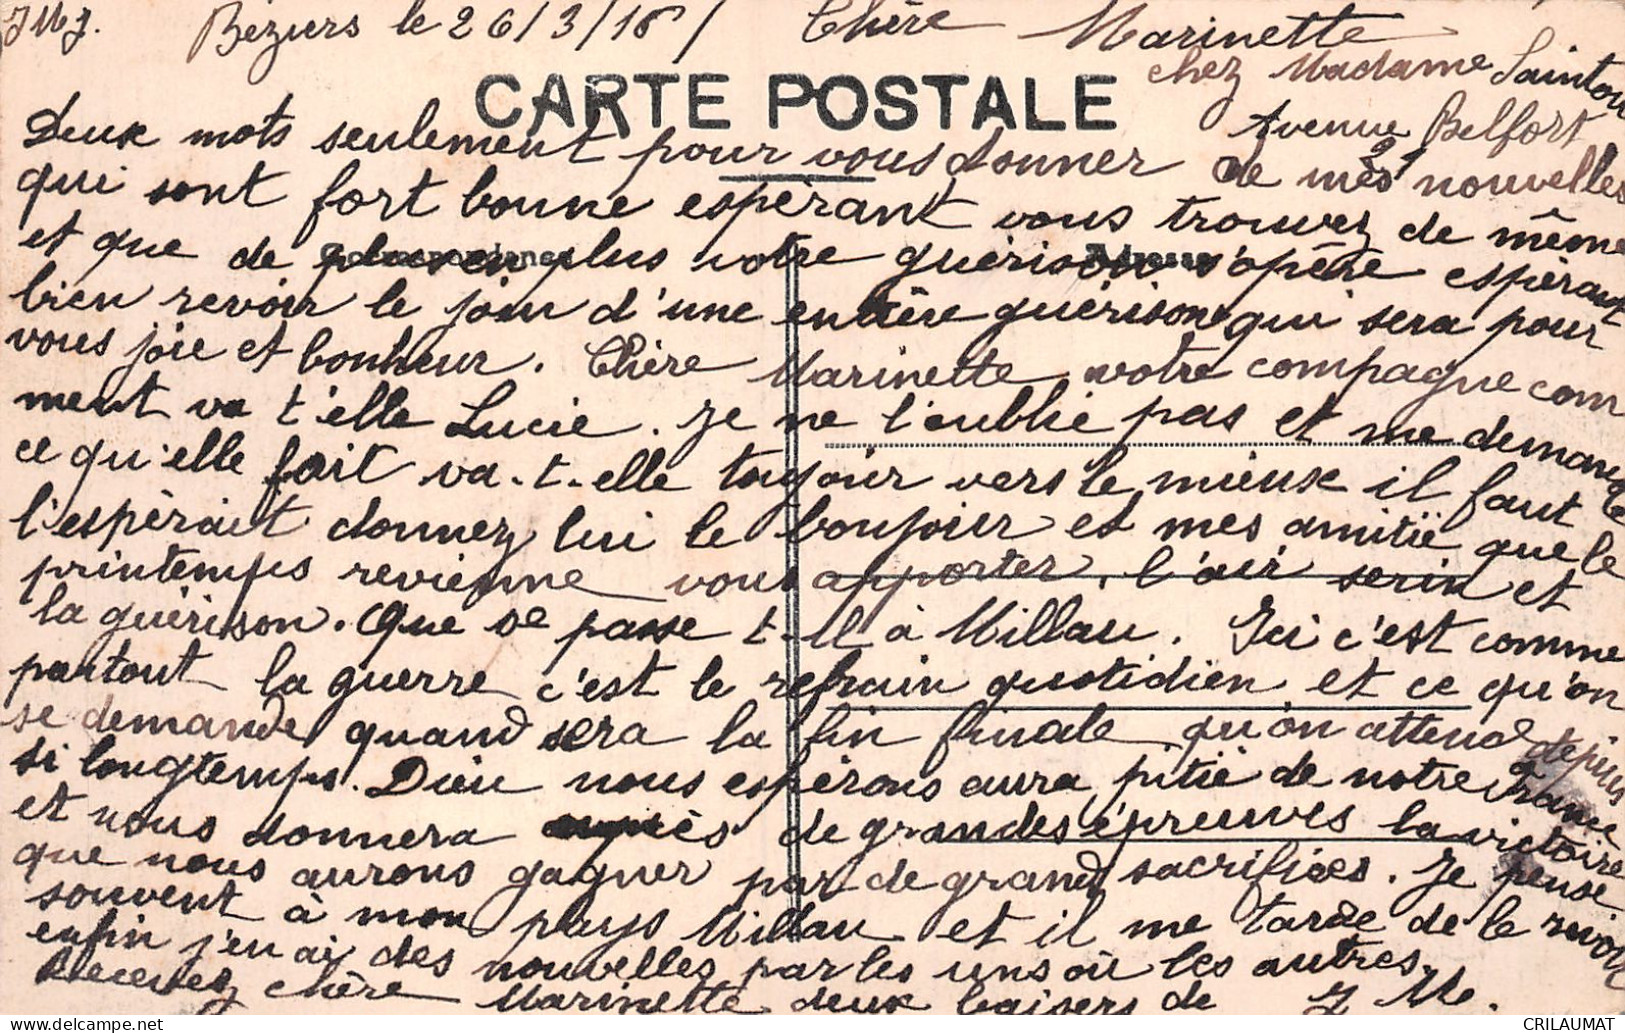 JMJ. Béziers le 26/3/18 / Chère Marinette
chez Madame Saintou
CARTE POSTALE
Avenue Belfort
21
Deux mots seulement pour vous donner de mes nouvelles
qui sont fort bonne espérant vous trouvez de même
et que de plus en plus votre guérison s'opère espérant
bien revoir le jour d'une entière guérison qui sera pour
vous joie et bonheur. Chère Marinette votre compagne com
ment va t'elle Lucie. Je ne l'oublie pas et me demande
ce qu'elle fait va-t-elle toujour vers le mieux il faut
l'espérait donnez lui le bonjour et mes amitié que le
printemps revienne vous apporter l'air serin et
la guérison. Que se passe t-il à Millau. Ici c'est comme
partout la guerre c'est le refrain quotidien et ce qu'on
se demande quand sera la fin finale qu'on attend depuis
si longtemps. Dieu nous espérons aura pitié de notre France
et nous donnera après de grandes épreuves la victoire
que nous aurons gagner par de grand sacrifices. Je pense
souvent à mon pays Millau et il me tarde de le revoir
enfin j'en ai des nouvelles par les uns ou les autres.
Recevez chère Marinette deux baisers de J M.
CRILAUMAT